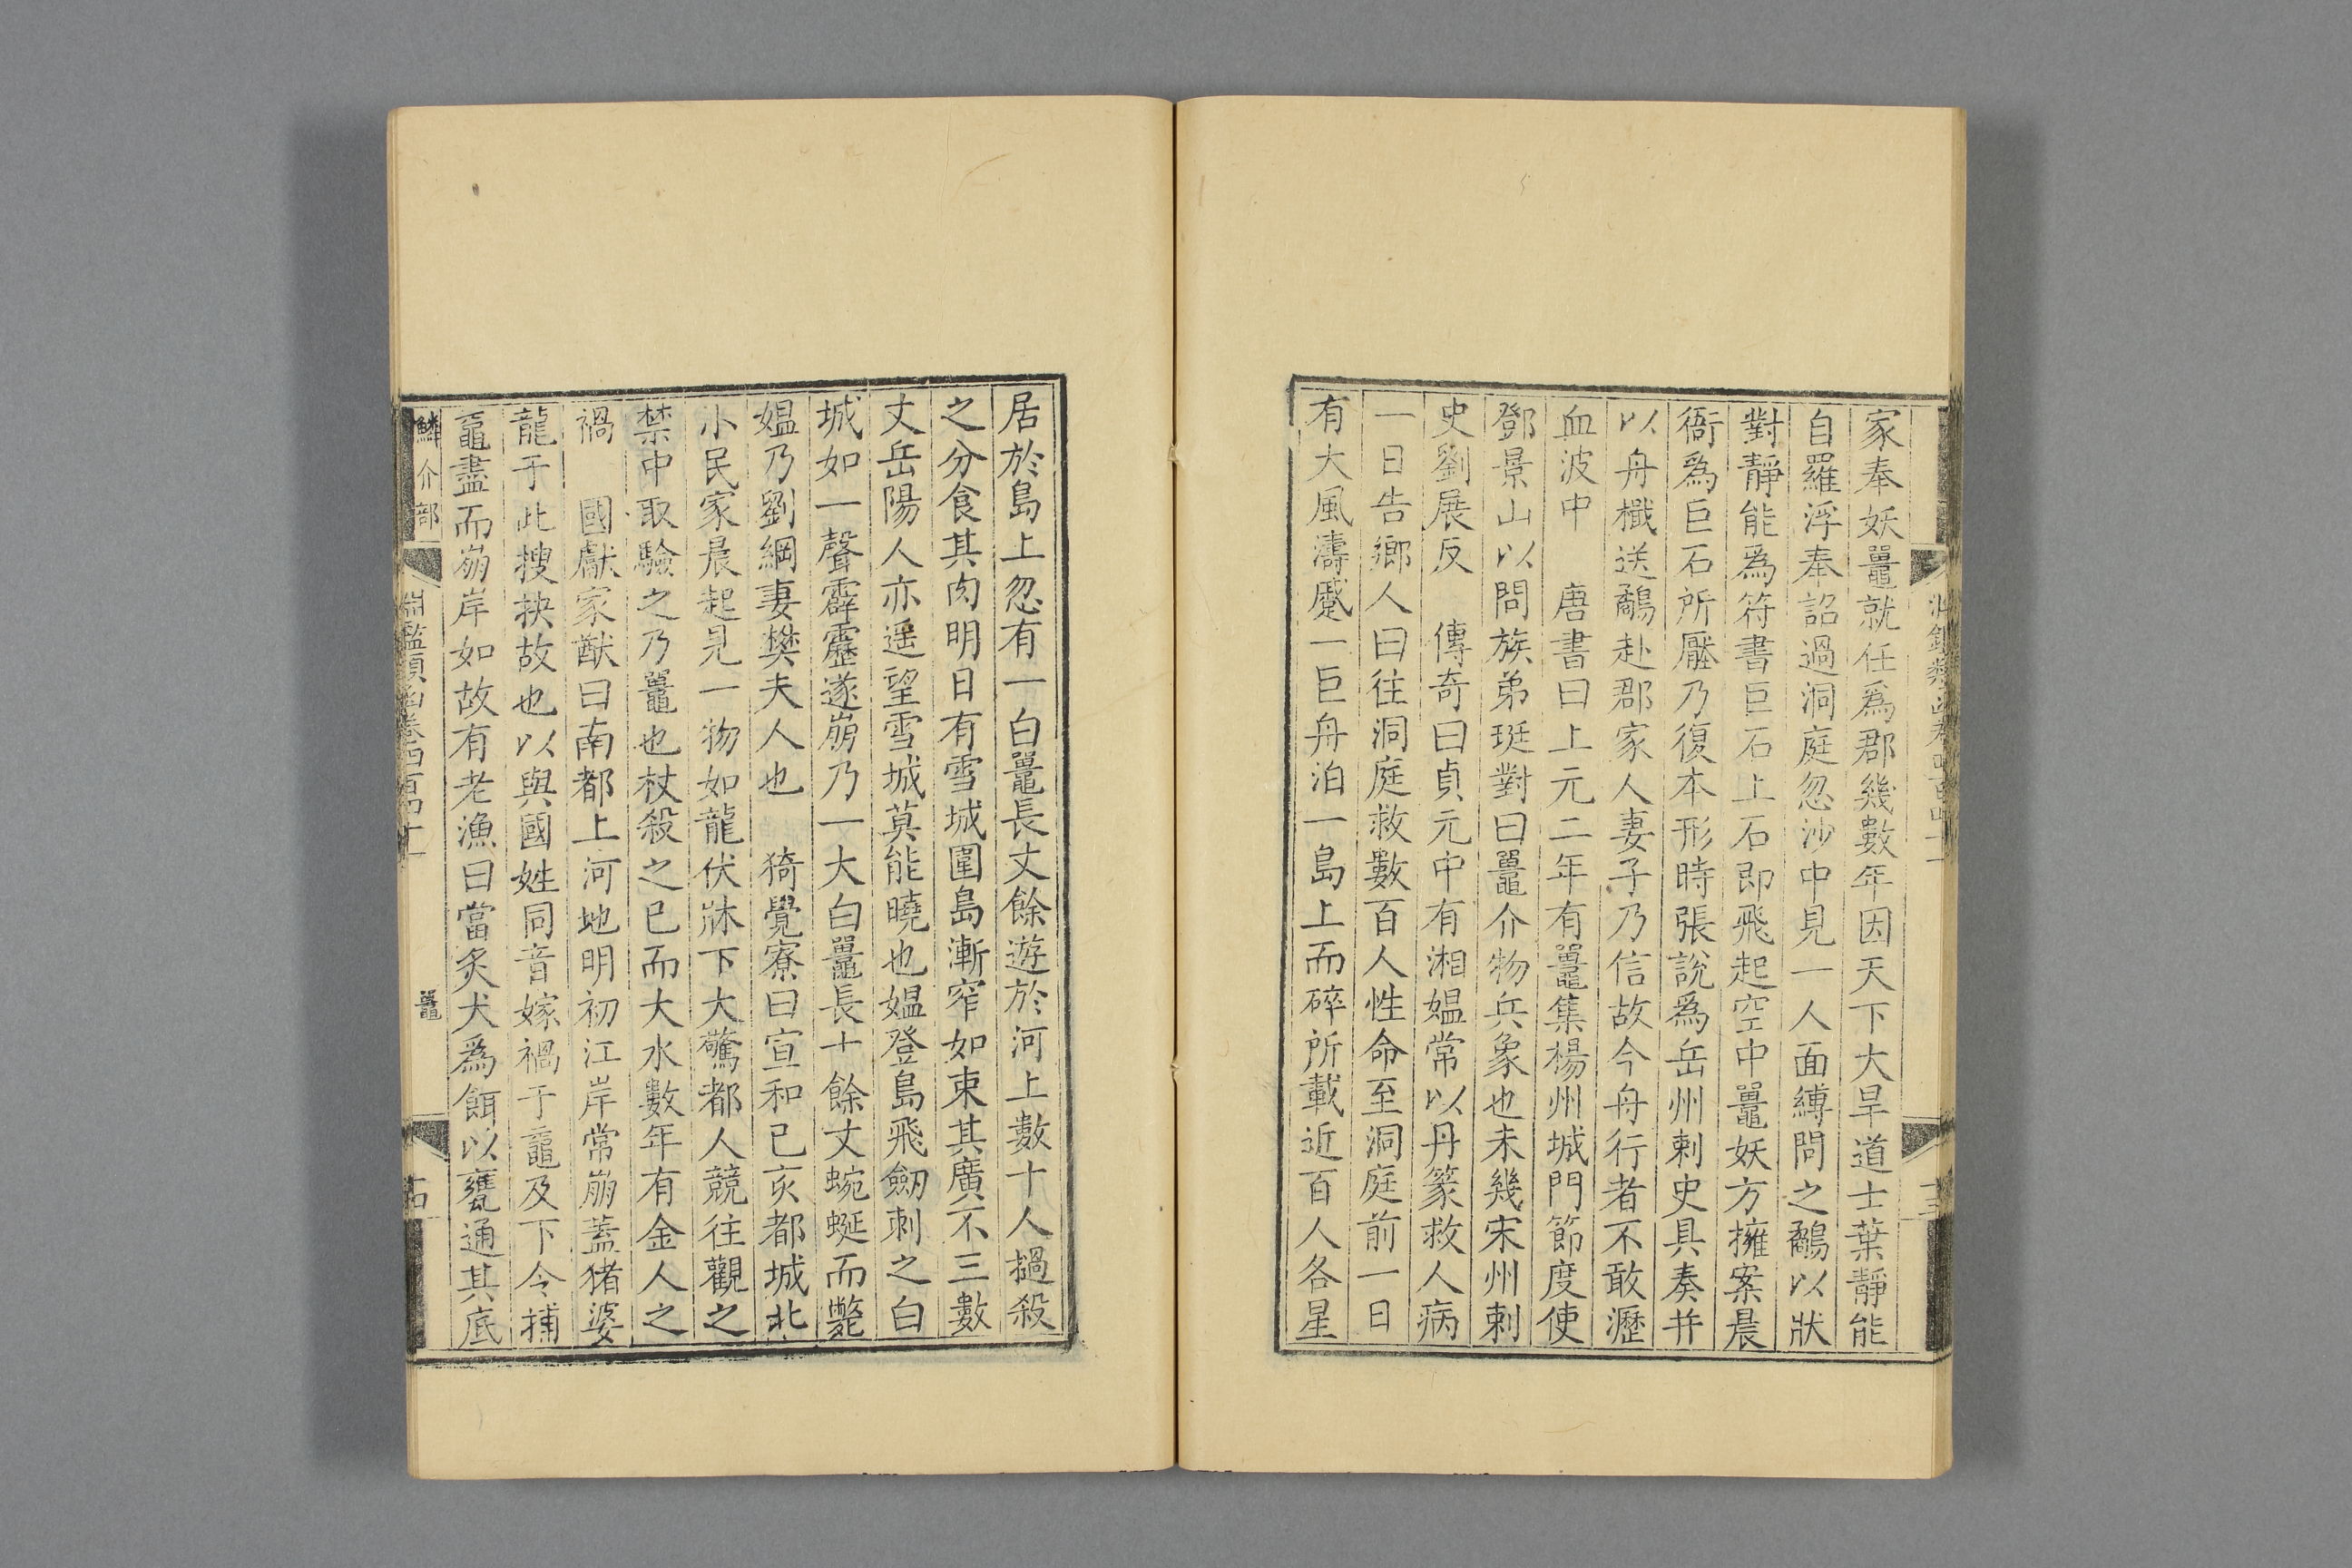 家奉妖鼉就任爲郡幾數年因天下大旱道士葉靜能
自羅浮奉詔過洞庭忽沙中見一人面縛問之鷸以狀
對靜能爲符書巨石上石即飛起空中鼉妖方擁案晨
衙爲巨石所壓乃復本形時張說爲岳州刺史具奏并
以舟檝送鷸赴郡家人妻子乃信故今舟行者不敢瀝
血波中　唐書曰上元二年有鼉集楊州城門節度使
鄧景山以問族弟珽對曰鼉介物兵象也未幾宋州刺
史劉展反　傳奇曰貞元中有湘媼常以丹篆救人病
一日告鄉人曰往洞庭救數百人性命至洞庭前一日
有大風濤蹙一巨舟泊一島上而碎所載近百人各星
居於島上忽有一白鼉長丈餘遊於河上數十人撾殺
之分食其肉明日有雪城圍島漸窄如束其廣不三數
丈岳陽人亦遥望雪城莫能曉也媼登島飛劒刺之白
城如一聲霹靂遂崩乃一大白鼉長十餘丈蜿蜒而斃
媼乃劉綱妻樊夫人也　猗覺寮曰宣和己亥都城北
小民家晨起見一物如龍伏牀下大驚都人競往觀之
禁中取驗之乃鼉也杖殺之已而大水數年有金人之
禍　國獻家猷曰南都上河地明初江岸常崩蓋猪婆
龍于此搜抉故也以與國姓同音嫁禍于黿及下令捕
黿盡而崩岸如故有老漁曰當炙犬爲餌以甕通其底
鱗介部
淵鑑類函卷四百四十一
鼉